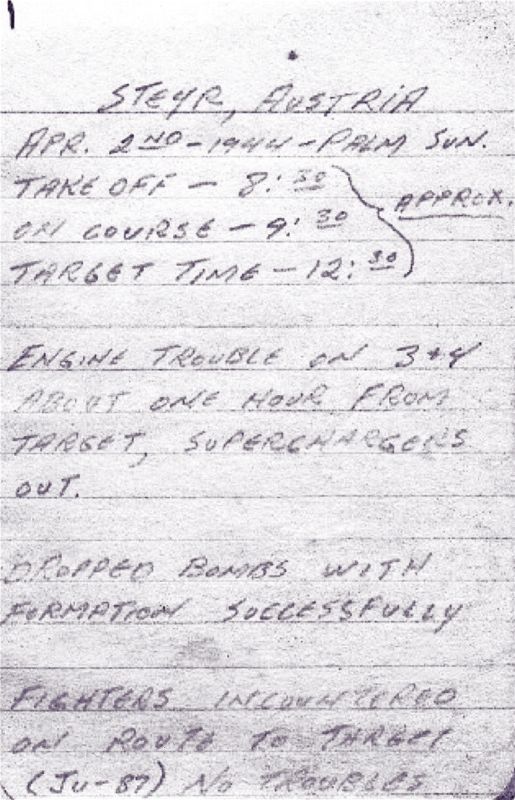 1
STEYR, AUSTRIA
APR. 2ND - 1944 - PALM SUN.
TAKE OFF - 8:30
ON COURSE - 9:30 APPROX.
TARGET TIME - 12:30
ENGINE TROUBLE ON 3+4
ABOUT ONE HOUR FROM
TARGET, SUPERCHARGERS
OUT.
DROPPED BOMBS WITH
FORMATION SUCCESSFULLY
FIGHTERS INCOUNTERED
ON ROUTE TO TARGET
(JU-87) NO TROUBLES